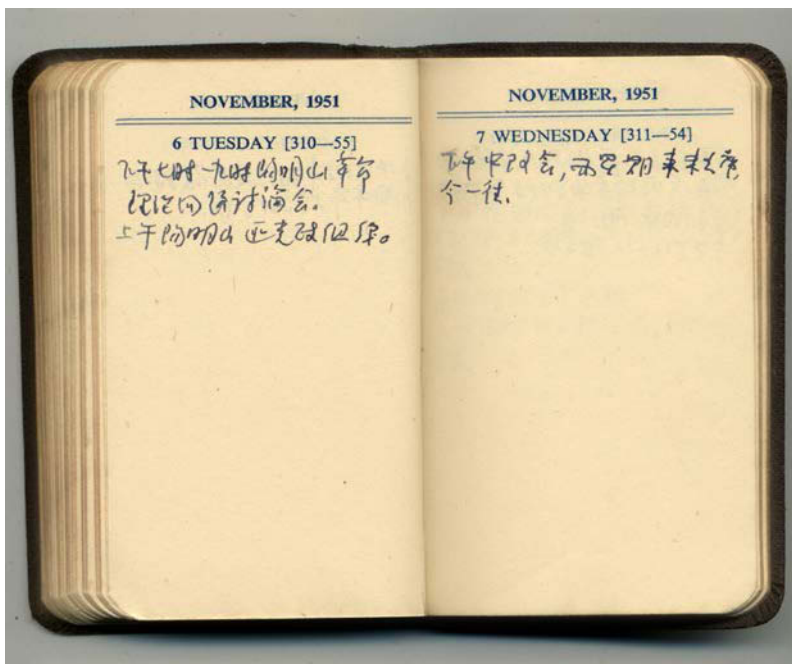 NOVEMBER, 1951
6 TUESDAY [310—55]
下午七时一九时阳明山革命
理论问题讨論会。
上午阳明山
NOVEMBER, 1951
7 WEDNESDAY [311—54]
下午中改会,
今一往。